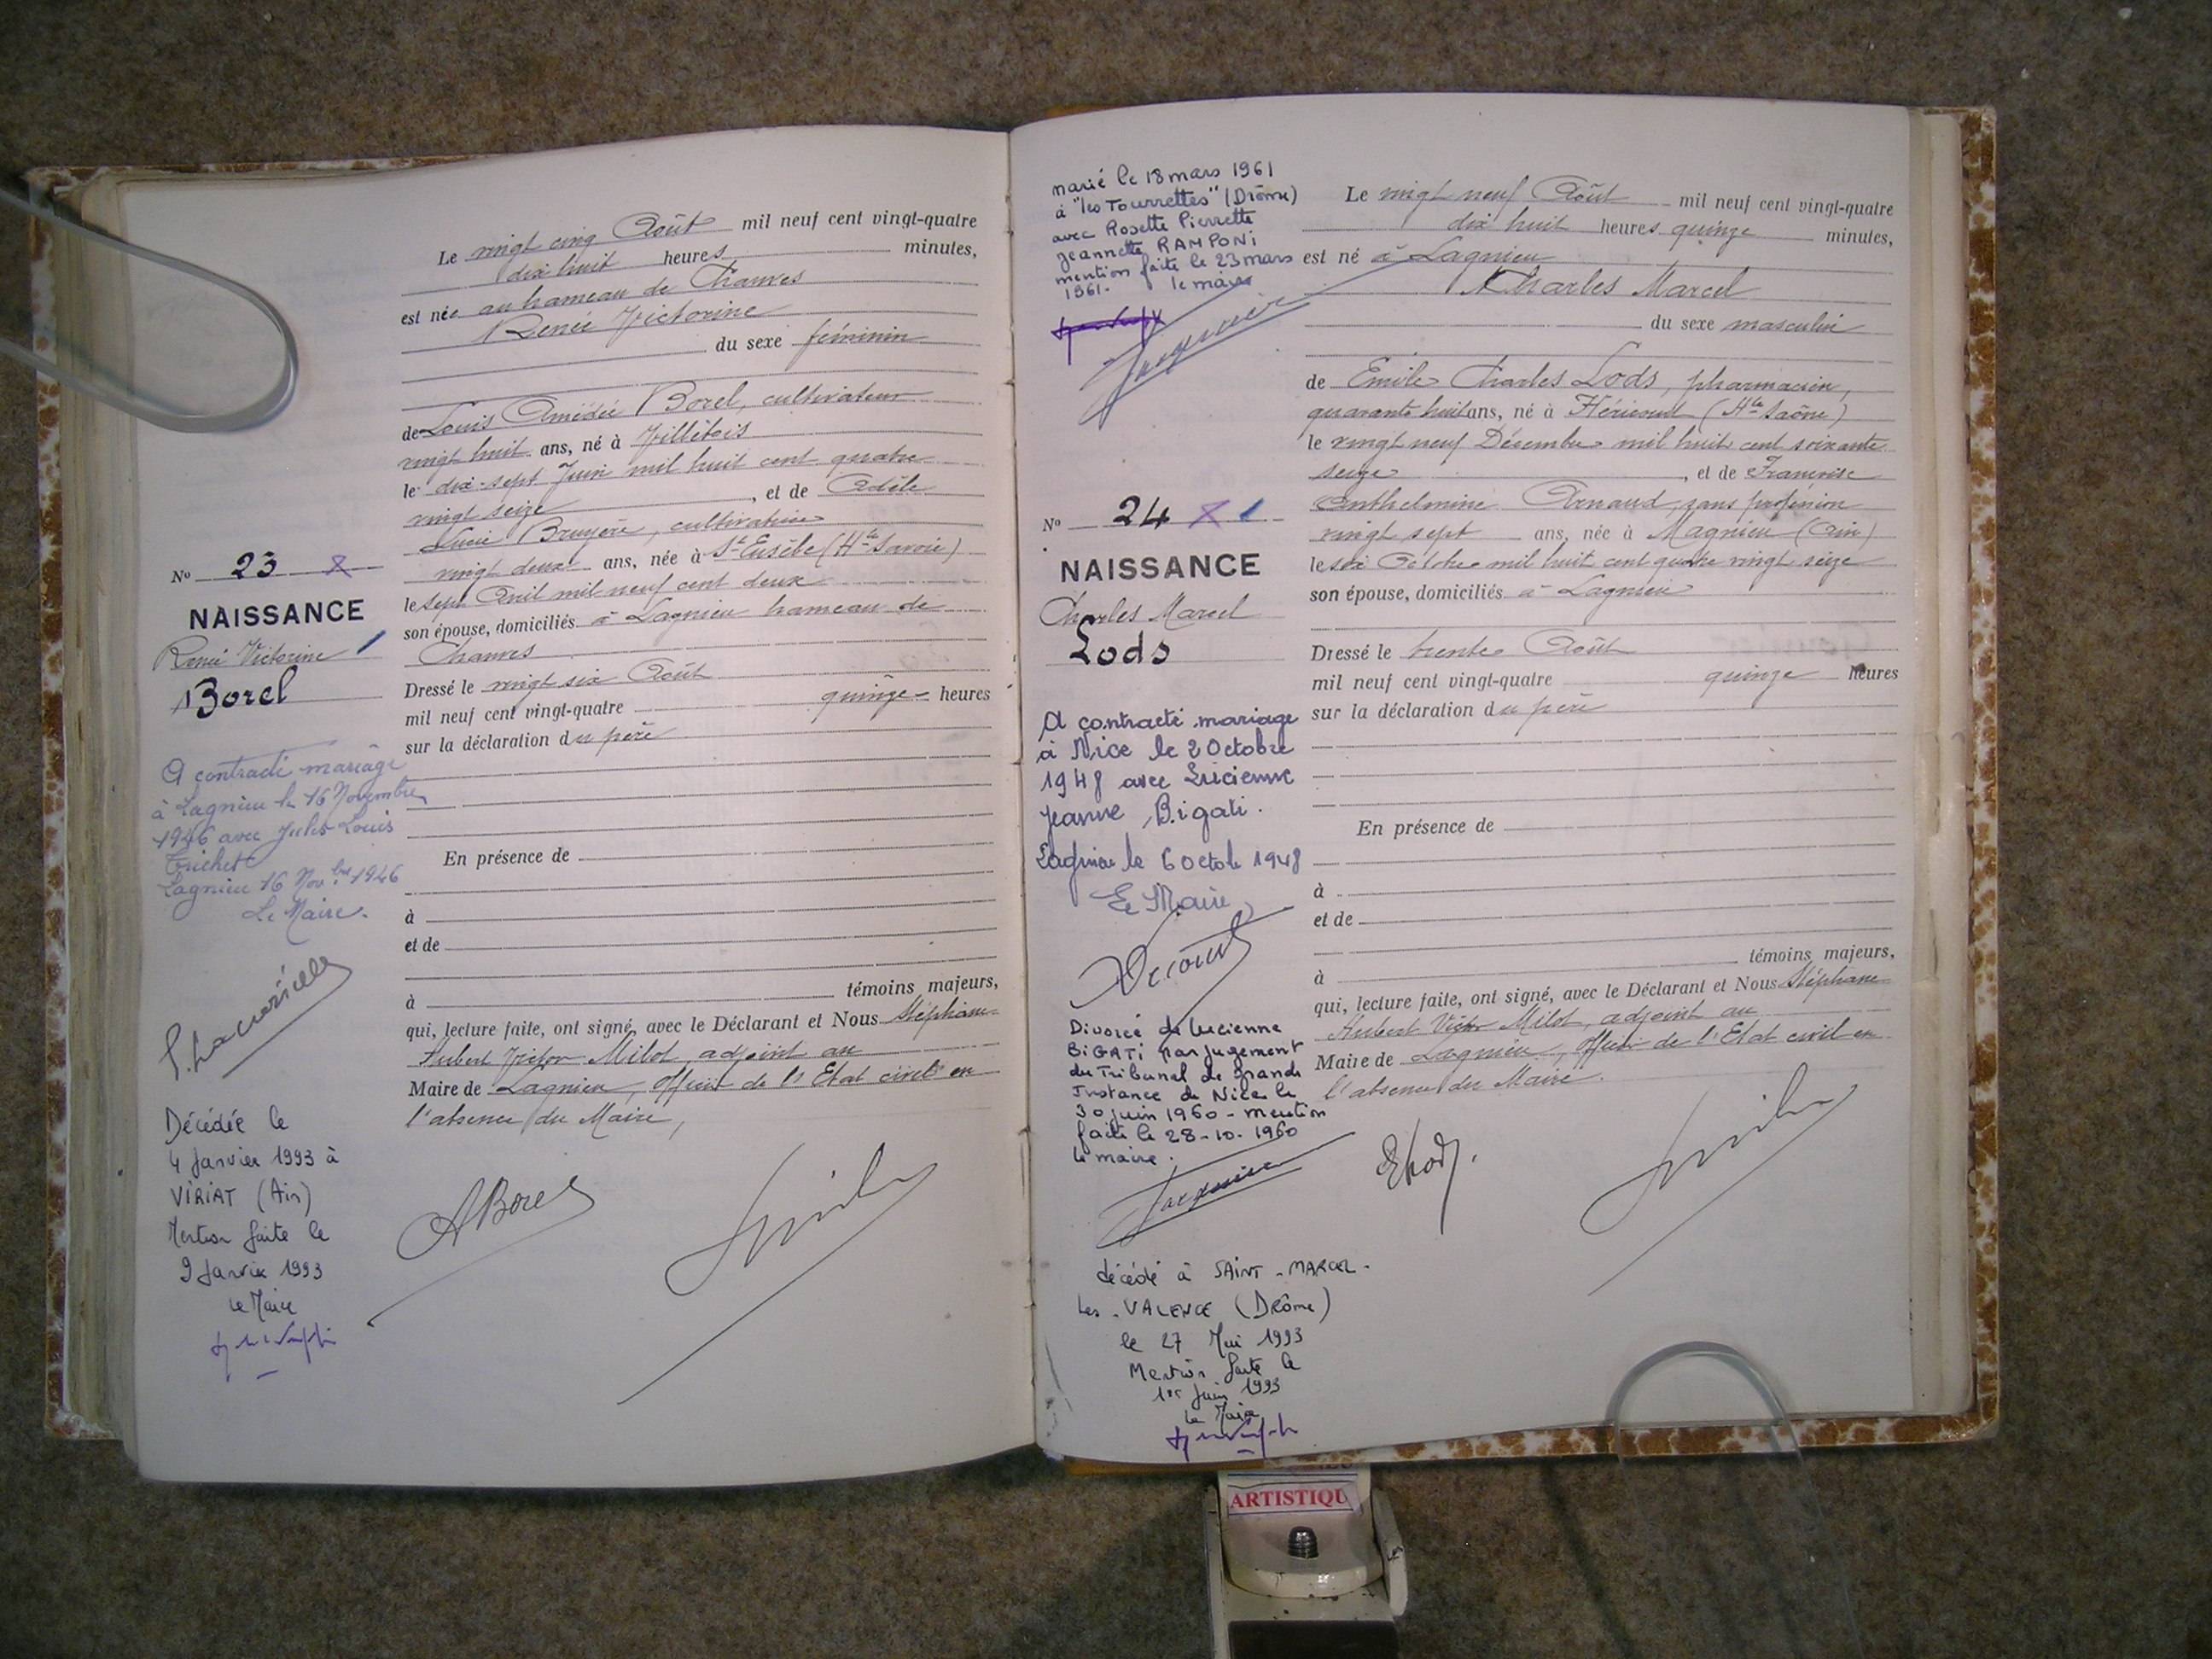 Le vingt cinq Août mil neuf cent vingt-quatre
dix huit heures minutes,
est née au hameau de Chanves
Renée Victorine
du sexe féminin
de Louis Amédée Borel, cultivateur
vingt huit ans, né à Villebois
le dix-sept Juin mil huit cent quatre
vingt seize, et de Adèle
Lucie Bruyère, cultivatrice
vingt deux ans, née à St Eusèbe (Hte Savoie)
le sept Avril mil neuf cent deux
son épouse, domiciliés à Lagnieu hameau de
Chanves
Dressé le vingt six Août
mil neuf cent vingt-quatre quinze heures
sur la déclaration du père
En présence de
à
et de
à témoins majeurs,
qui, lecture faite, ont signé avec le Déclarant et Nous Stéphane
Hubert Victor Milot, adjoint au
Maire de Lagnieu, Officier de l'Etat civil en
l'absence du Maire,
ABorel
No 23
NAISSANCE
Renée Victorine
Borel
A contracté mariage
à Lagnieu le 16 Novembre
1946 avec Jules Louis
Trichet
Lagnieu 16 Nov.bre 1946
Le Maire.
Décédée le
4 Janvier 1993 à
VIRIAT (Ain)
Mention faite le
9 Janvier 1993
Le Maire
marié le 18 mars 1961
à "les Tourrettes" (Drôme)
avec Rosette Pierrette
Jeannette RAMPONI
mention faite le 23 mars
1961. le maire
No 24
NAISSANCE
Charles Marcel
Lods
A contracté mariage
à Nice le 2 Octobre
1948 avec Lucienne
Jeanne Bigati.
Lagnieu le 6 Octob 1948
Le Maire
Divorcé de Lucienne
BIGATI par jugement
du Tribunal de Grande
Instance de Nice le
30 juin 1960 - mention
faite le 28-10-1960
le maire.
décédé à SAINT-MARCEL-
Les-VALENCE (Drôme)
le 27 Mai 1993
Mention faite le
1er Juin 1993
Le Maire
Le vingt neuf Août mil neuf cent vingt-quatre
dix huit heures quinze minutes,
est né à Lagnieu
Charles Marcel
du sexe masculin
de Emile Charles Lods, pharmacien,
quarante huit ans, né à Héricourt (Hte Saône)
le vingt neuf Décembre mil huit cent soixante
seize, et de Francoise
Anthelmine Arnaud, sans profession
vingt sept ans, née à Magnieu (Ain)
le six Octobre mil huit cent quatre vingt seize
son épouse, domiciliés à Lagnieu
Dressé le trente Août
mil neuf cent vingt-quatre quinze heures
sur la déclaration du père
En présence de
à
et de
à témoins majeurs,
qui, lecture faite, ont signé, avec le Déclarant et Nous Stéphane
Hubert Victor Milot, adjoint au
Maire de Lagnieu, Officier de l'Etat civil en
l'absence du Maire.
ELods.
ARTISTIQU